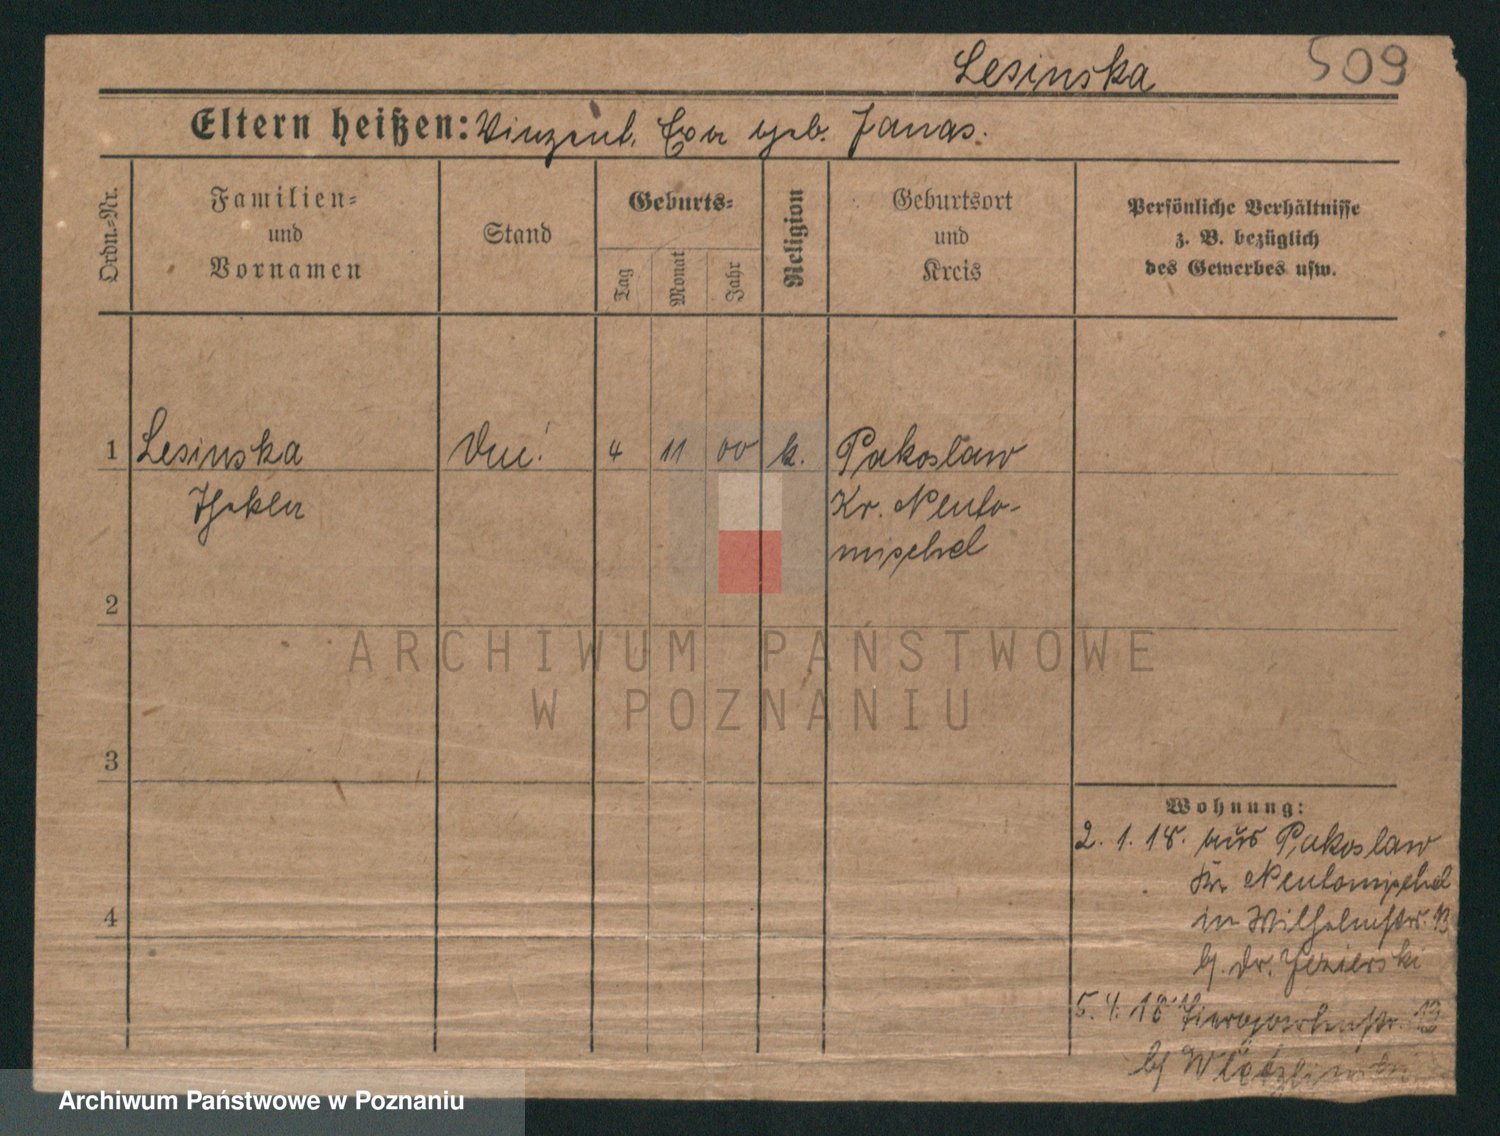 Lesinska 509
Eltern heißen: Vinzent. Eva geb. Janas.
Ordn.-Nr.
Familien-
und
Vornamen
Stand
Geburts-
Tag
Monat
Jahr
Religion
Geburtsort
und
Kreis
Persönliche Verhältnisse
z. B. bezüglich
des Gewerbes usw.
1 Lesinska 4 11 00 k. Pakoslaw
Thekla Kr. Neuto-
mischel
2
ARCHIWUM PAŃSTWOWE
W POZNANIU
3
Wohnung:
2. 1. 18. aus Pakoslaw
Kr. Neutomischel
in Wilhelmstr. 13
4
b. Dr. Jezierski
5. 4. 18 Tiergartenstr. 13
b
Archiwum Państwowe w Poznaniu